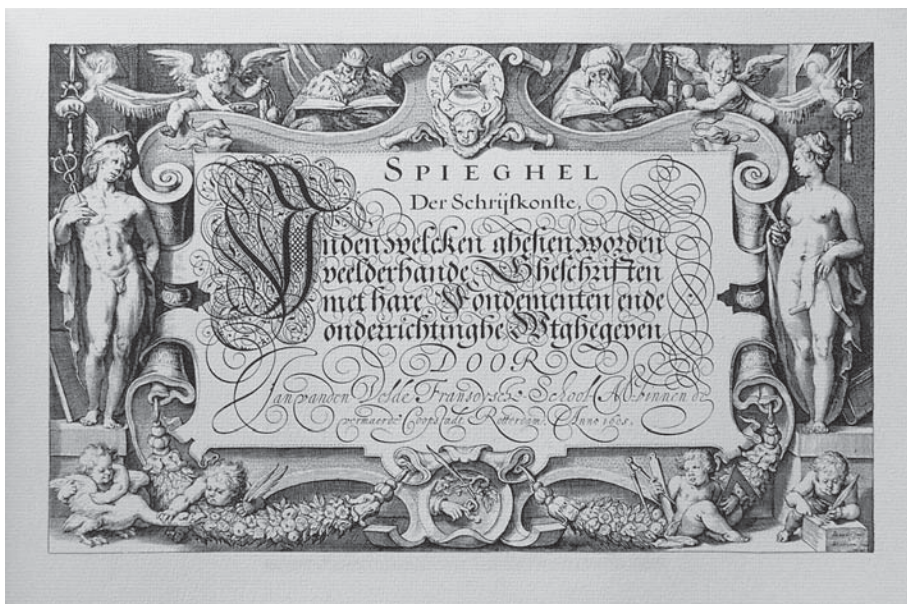 SPIEGHEL
Der Schrijfkonste,
Inden welcken ghesien worden
veelderhande Gheschriften
met hare Fondementen ende
onderrichtinghe Wtghegeven
DOOR
Jan vanden Velde Fransoysche School-M. binnen de
vermaerde Coopstadt Rotterdam. Anno 1605.